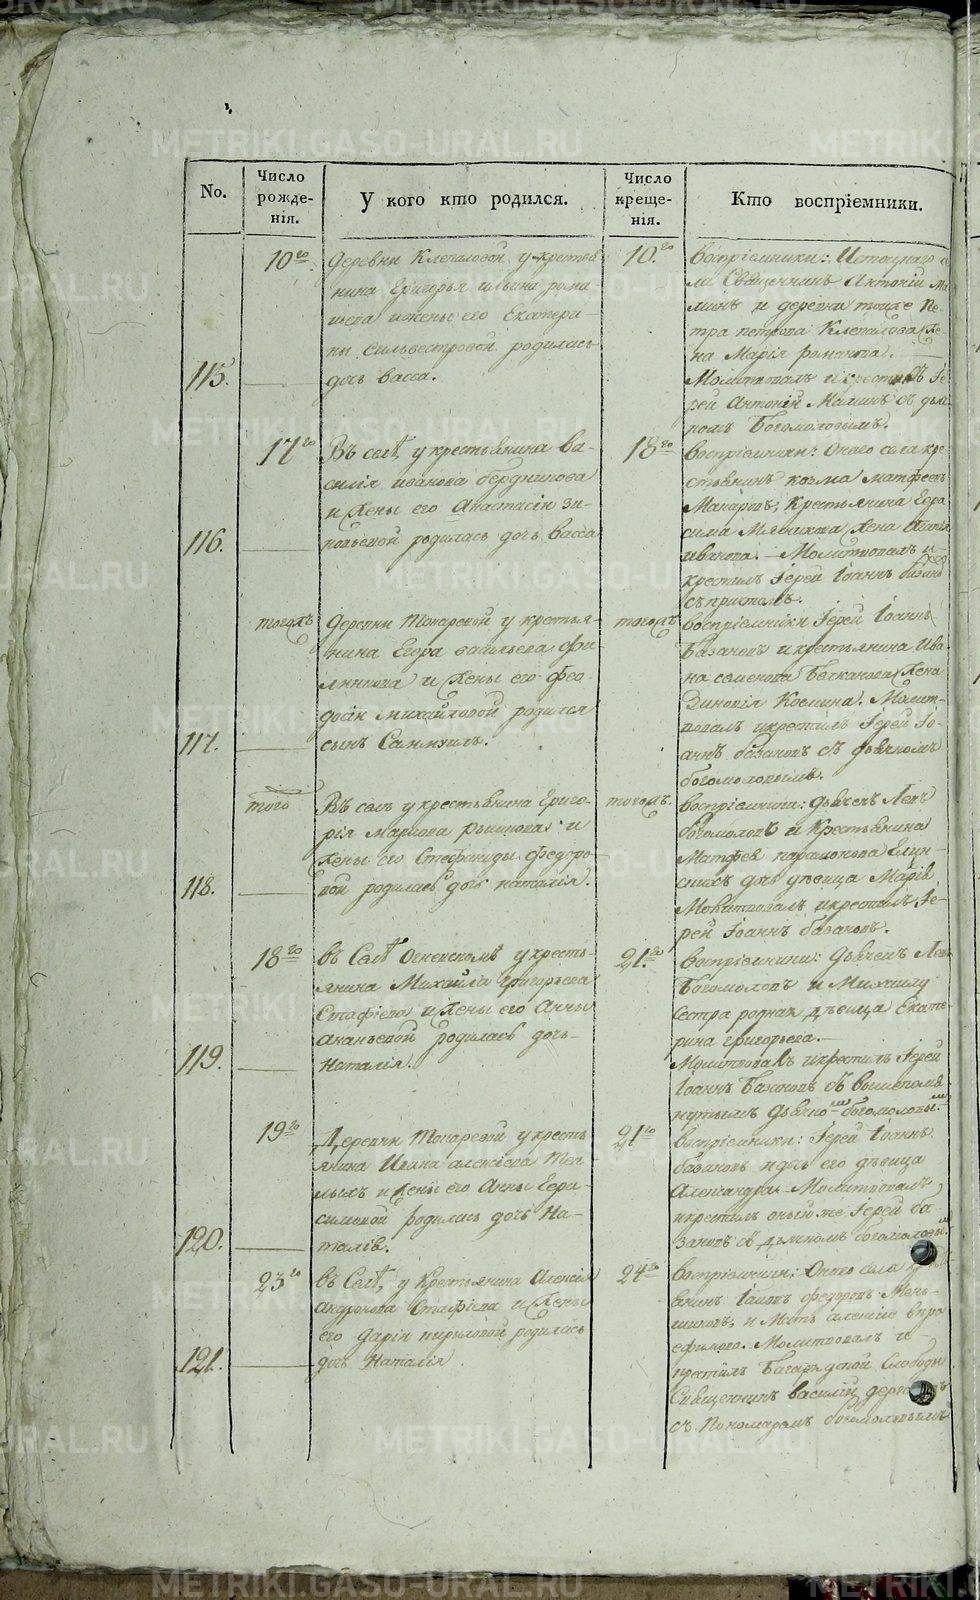 No.
Число рожде- нія.
У кого кто родился.
Число креще- нія.
Кто воспріемники.
115.
10го
Деревни Клепаловой у крестья
нина Григорья Ильина рома
нова и жены его Екатери-
ны Сильвестровой родилась
дочь васса.
10.го
воспріемники: Истоцкаго се
ла Священникъ Антоній Ма
минъ и деревни тоже Пе-
тра петрова Клепалова же
на Марія романова.
Молитвовалъ и крестилъ Іе
рей Антоній Маминъ съ дьяч
комъ Богомоловымъ.
116.
17го
Въ селѣ у крестьянина ва-
силія иванова бердникова
и жены его Анастасіи зи-
новьевой родилась дочь васса
18го
воспріемники: Онаго села кре
стьянинъ козма матфеевъ
Макаровъ; Крестьянина Гера
сима Мясникова жена
иванова. Молитвовалъ и
крестилъ Іерей Іоаннъ базановъ
съ причтомъ.
117.
тогожъ
Деревни Токаревой у крестья-
нина Егора васильева фи-
линкова и жены его фео-
досіи михайловой родился
сынъ Самуилъ.
тогожъ
воспріемники Іерей Іоаннъ
Базановъ и крестьянина Ива-
на семенова жена
Зиновія Козмина. Молит-
вовалъ и крестилъ Іерей Іо-
аннъ базановъ съ дьячкомъ
богомоловымъ.
118.
того
Въ селѣ у крестьянина Григо-
рія Маркова и
жены его Стефаниды федоро-
вой родилась дочь наталія.
тогожъ.
воспріемники: дьячекъ Левъ
богомоловъ и Крестьянина
Матфея парамонова
дочь дѣвица Марія
Молитвовалъ и крестилъ Іе-
рей Іоаннъ базановъ.
119.
18го
въ Селѣ Огневскомъ у кресть-
янина Михайла Григорьева
Стафіева и жены его Анны
ананьевой родилась дочь
Наталія.
21.го
воспріемники: дьячекъ Левъ
Богомоловъ и Михаилу
сестра родная дѣвица Екате
рина григорьева.
Молитвовалъ и крестилъ Іерей
Іоаннъ Базановъ съ вышепомя
нутымъ дьячкомъ богомоловымъ.
120.
19го
Деревни Токаревой у кресть
янина Ивана алексіева Теп
лыхъ и жены его Анны Гера
симовой родилась дочь На-
талія.
21го
воспріемники: Іерей Іоаннъ
базановъ и дочь его дѣвица
Александра. Молитвовалъ
и крестилъ оный же Іерей ба
зановъ съ дьячкомъ богомоловым
121.
23го
въ Селѣ, у Крестьянина Алексія
андронова Стафіева и жены
его дарьи кириловой родилась
дочь Наталія.
24го
воспріемники: Онаго села крест
янинъ Іаковъ федоровъ Мень-
шиковъ, и Мать
ефимова. Молитвовалъ и
крестилъ Багаряцкой Слободы
Священникъ василій
съ Пономаремъ богомоловымъ
METRIKI.GASO-URAL.RU